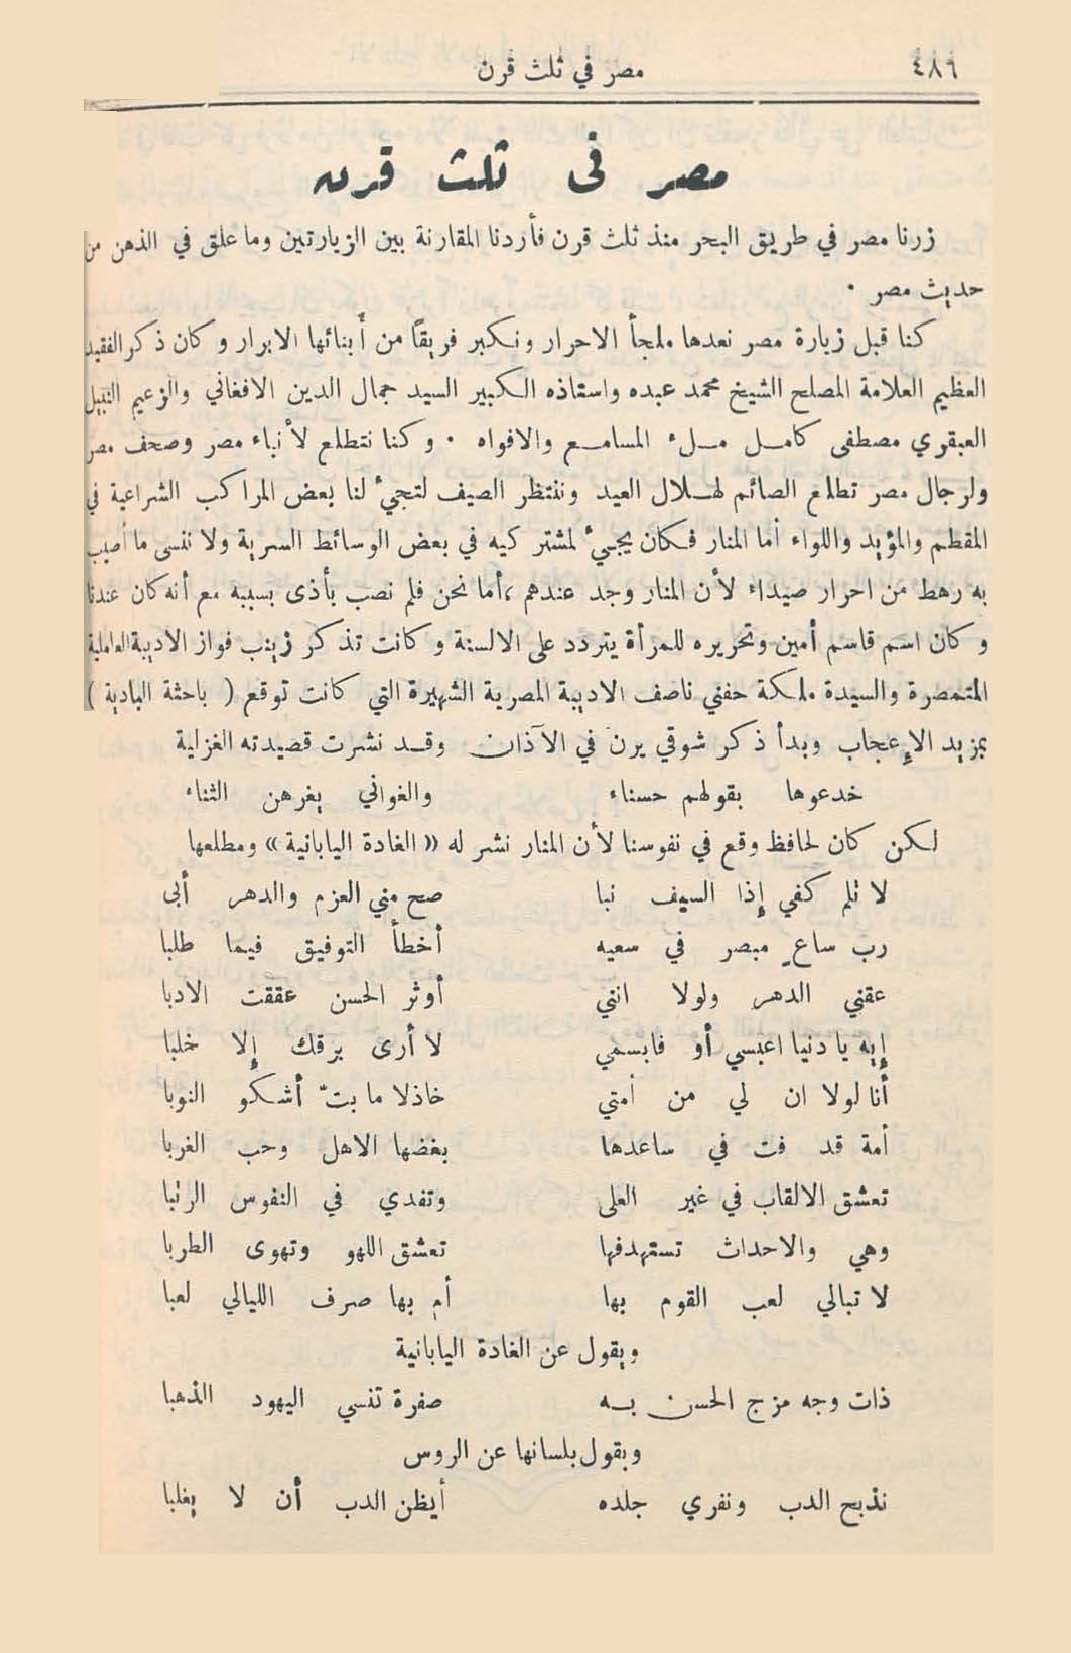 ٤٨٦
مصر في ثلث قرن
مصر فى ثلث قرن
زرنا مصر في طريق البحر منذ ثلث قرن فأردنا المقارنة بين الزيارتين وما علق في الذهن من
حديث مصر .
كنا قبل زيارة مصر نعدها ملجأ الاحرار ونكبر فريقًا من أبنائها الابرار وكان ذكر الفقيد
العظيم العلامة المصلح الشيخ محمد عبده واستاذه الكبير السيد جمال الدين الافغاني والزعيم النبيل
العبقري مصطفى كامل ملء المسامع والافواه . وكنا نتطلع لأنباء مصر وصحف مصر
ولرجال مصر تطلع الصائم لهلال العيد وننتظر الصيف لتجيء لنا بعض المراكب الشراعية في
المقطم والمؤيد واللواء أما المنار فكان يجيء لمشتركيه في بعض الوسائط السرية ولا ننسى ما أصيب
به رهط من احرار صيداء لأن المنار وجد عندهم ، أما نحن فلم نصب بأذى بسببه مع أنه كان عندنا
وكان اسم قاسم أمين وتحريره للمرأة يتردد على الالسنة وكانت تذكر زينب فواز الاديبة العاملية
المتمصرة والسيدة ملكة حفني ناصف الاديبة المصرية الشهيرة التي كانت توقع ( باحثة البادية )
بمزيد الإعجاب وبدأ ذكر شوقي يرن في الآذان وقد نشرت قصيدته الغزلية
خدعوها بقولهم حسناء والغواني يغرهن الثناء
لكن كان لحافظ وقع في نفوسنا لأن المنار نشر له «الغادة اليابانية» ومطلعها
لا تلم كفي إذا السيف نبا صح مني العزم والدهر أبى
رب ساعٍ مبصر في سعيه أخطأ التوفيق فيما طلبا
عقني الدهر ولولا انني أوثر الحسن عققت الادبا
إيه يا دنيا اعبسي أو فابسمي لا أرى برقك إلا خلبا
أنا لولا ان لي من أمتي خاذلا ما بتّ أشكو النوبا
أمة قد فت في ساعدها بغضها الاهل وحب الغربا
تعشق الالقاب في غير العلى وتفدي في النفوس الرتبا
وهي والاحداث تستهدفها تعشق اللهو وتهوى الطربا
لا تبالي لعب القوم بها أم بها صرف الليالي لعبا
ويقول عن الغادة اليابانية
ذات وجه مزج الحسن به صفرة تنسي اليهود الذهبا
ويقول بلسانها عن الروس
نذبح الدب ونفري جلده أيظن الدب أن لا يغلبا